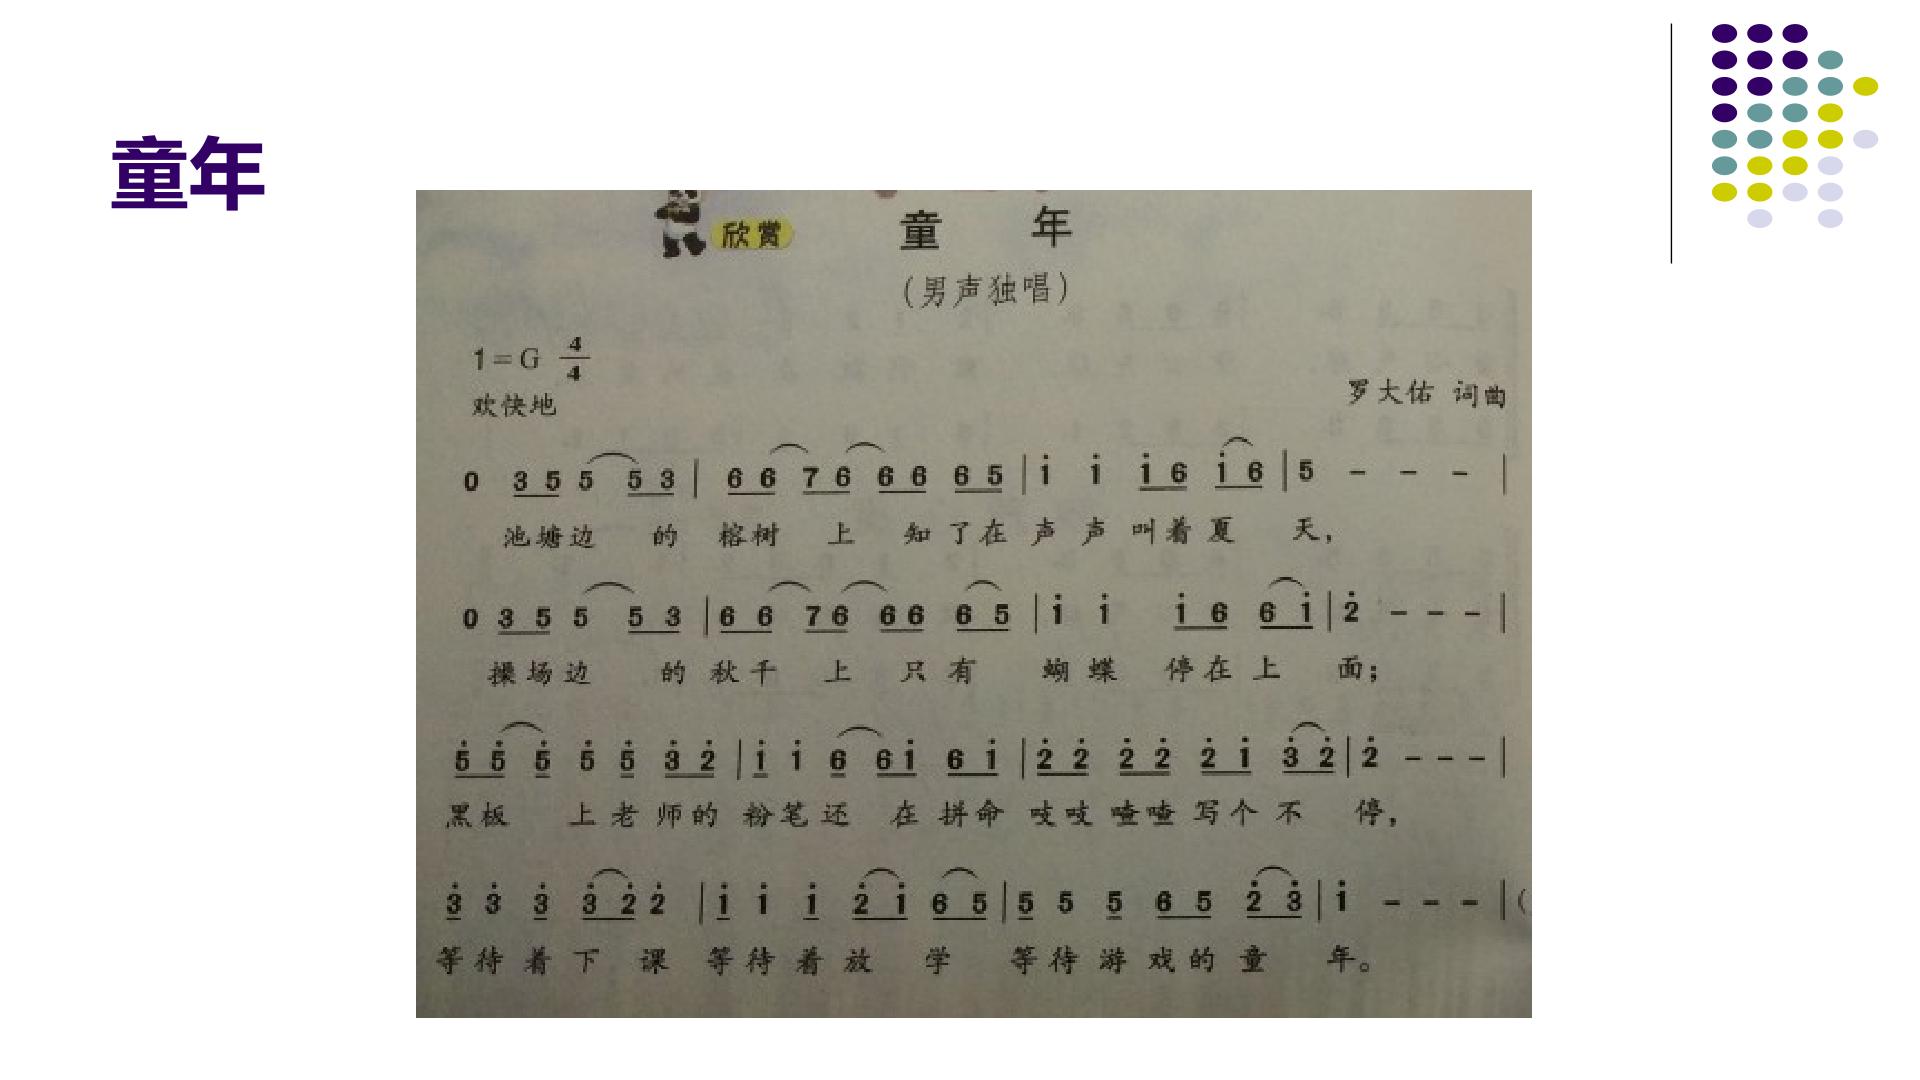 童年
欣赏
童 年
（男声独唱）
1=G 4/4
欢快地
罗大佑 词曲
0 3 5 5 5 3 | 6 6 7 6 6 6 6 5 | i i i 6 i 6 | 5 - - - |
池塘边 的 榕树 上 知了在 声声叫着夏 天，
0 3 5 5 5 3 | 6 6 7 6 6 6 6 5 | i i i 6 6 i | 2̇ - - - |
操场边 的 秋千 上 只有 蝴蝶 停在上 面；
5̇ 5̇ 5̇ 5̇ 5̇ 3̇ 2̇ | i i 6 6 i 6 i | 2̇ 2̇ 2̇ 2̇ 2̇ i 3̇ 2̇ | 2̇ - - - |
黑板 上老师的 粉笔还 在拼命 吱吱喳喳写个不 停，
3̇ 3̇ 3̇ 3̇ 2̇ 2̇ | i i i 2̇ i 6 5 | 5 5 5 6 5 2̇ 3̇ | i - - - | (
等待着下 课 等待着放 学 等待游戏的童 年。